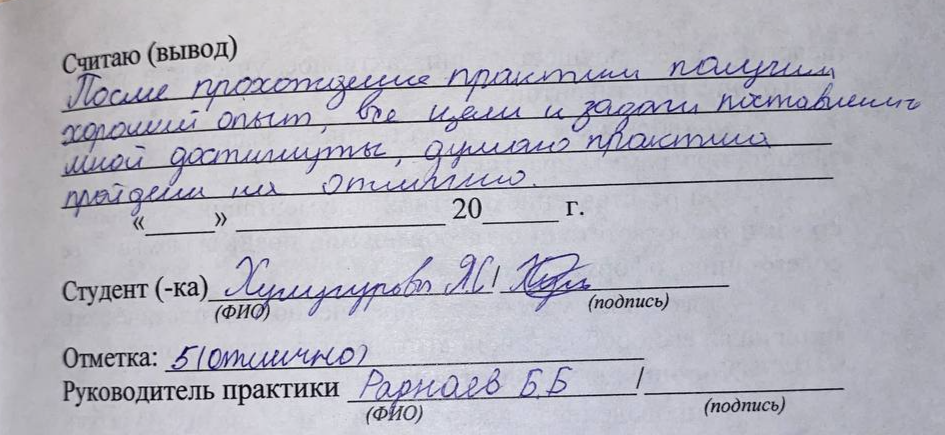 Считаю (вывод)
После прохождение практики получил
хороший опыт, все цели и задачи поставленные
мной достигнуты, думаю практика
пройдена на отлично.
«_____» ________________ 20______ г.
Студент (-ка)
(ФИО) (подпись)
Отметка: 5 (отлично)
Руководитель практики Раднаев Б.Б /
(ФИО) (подпись)